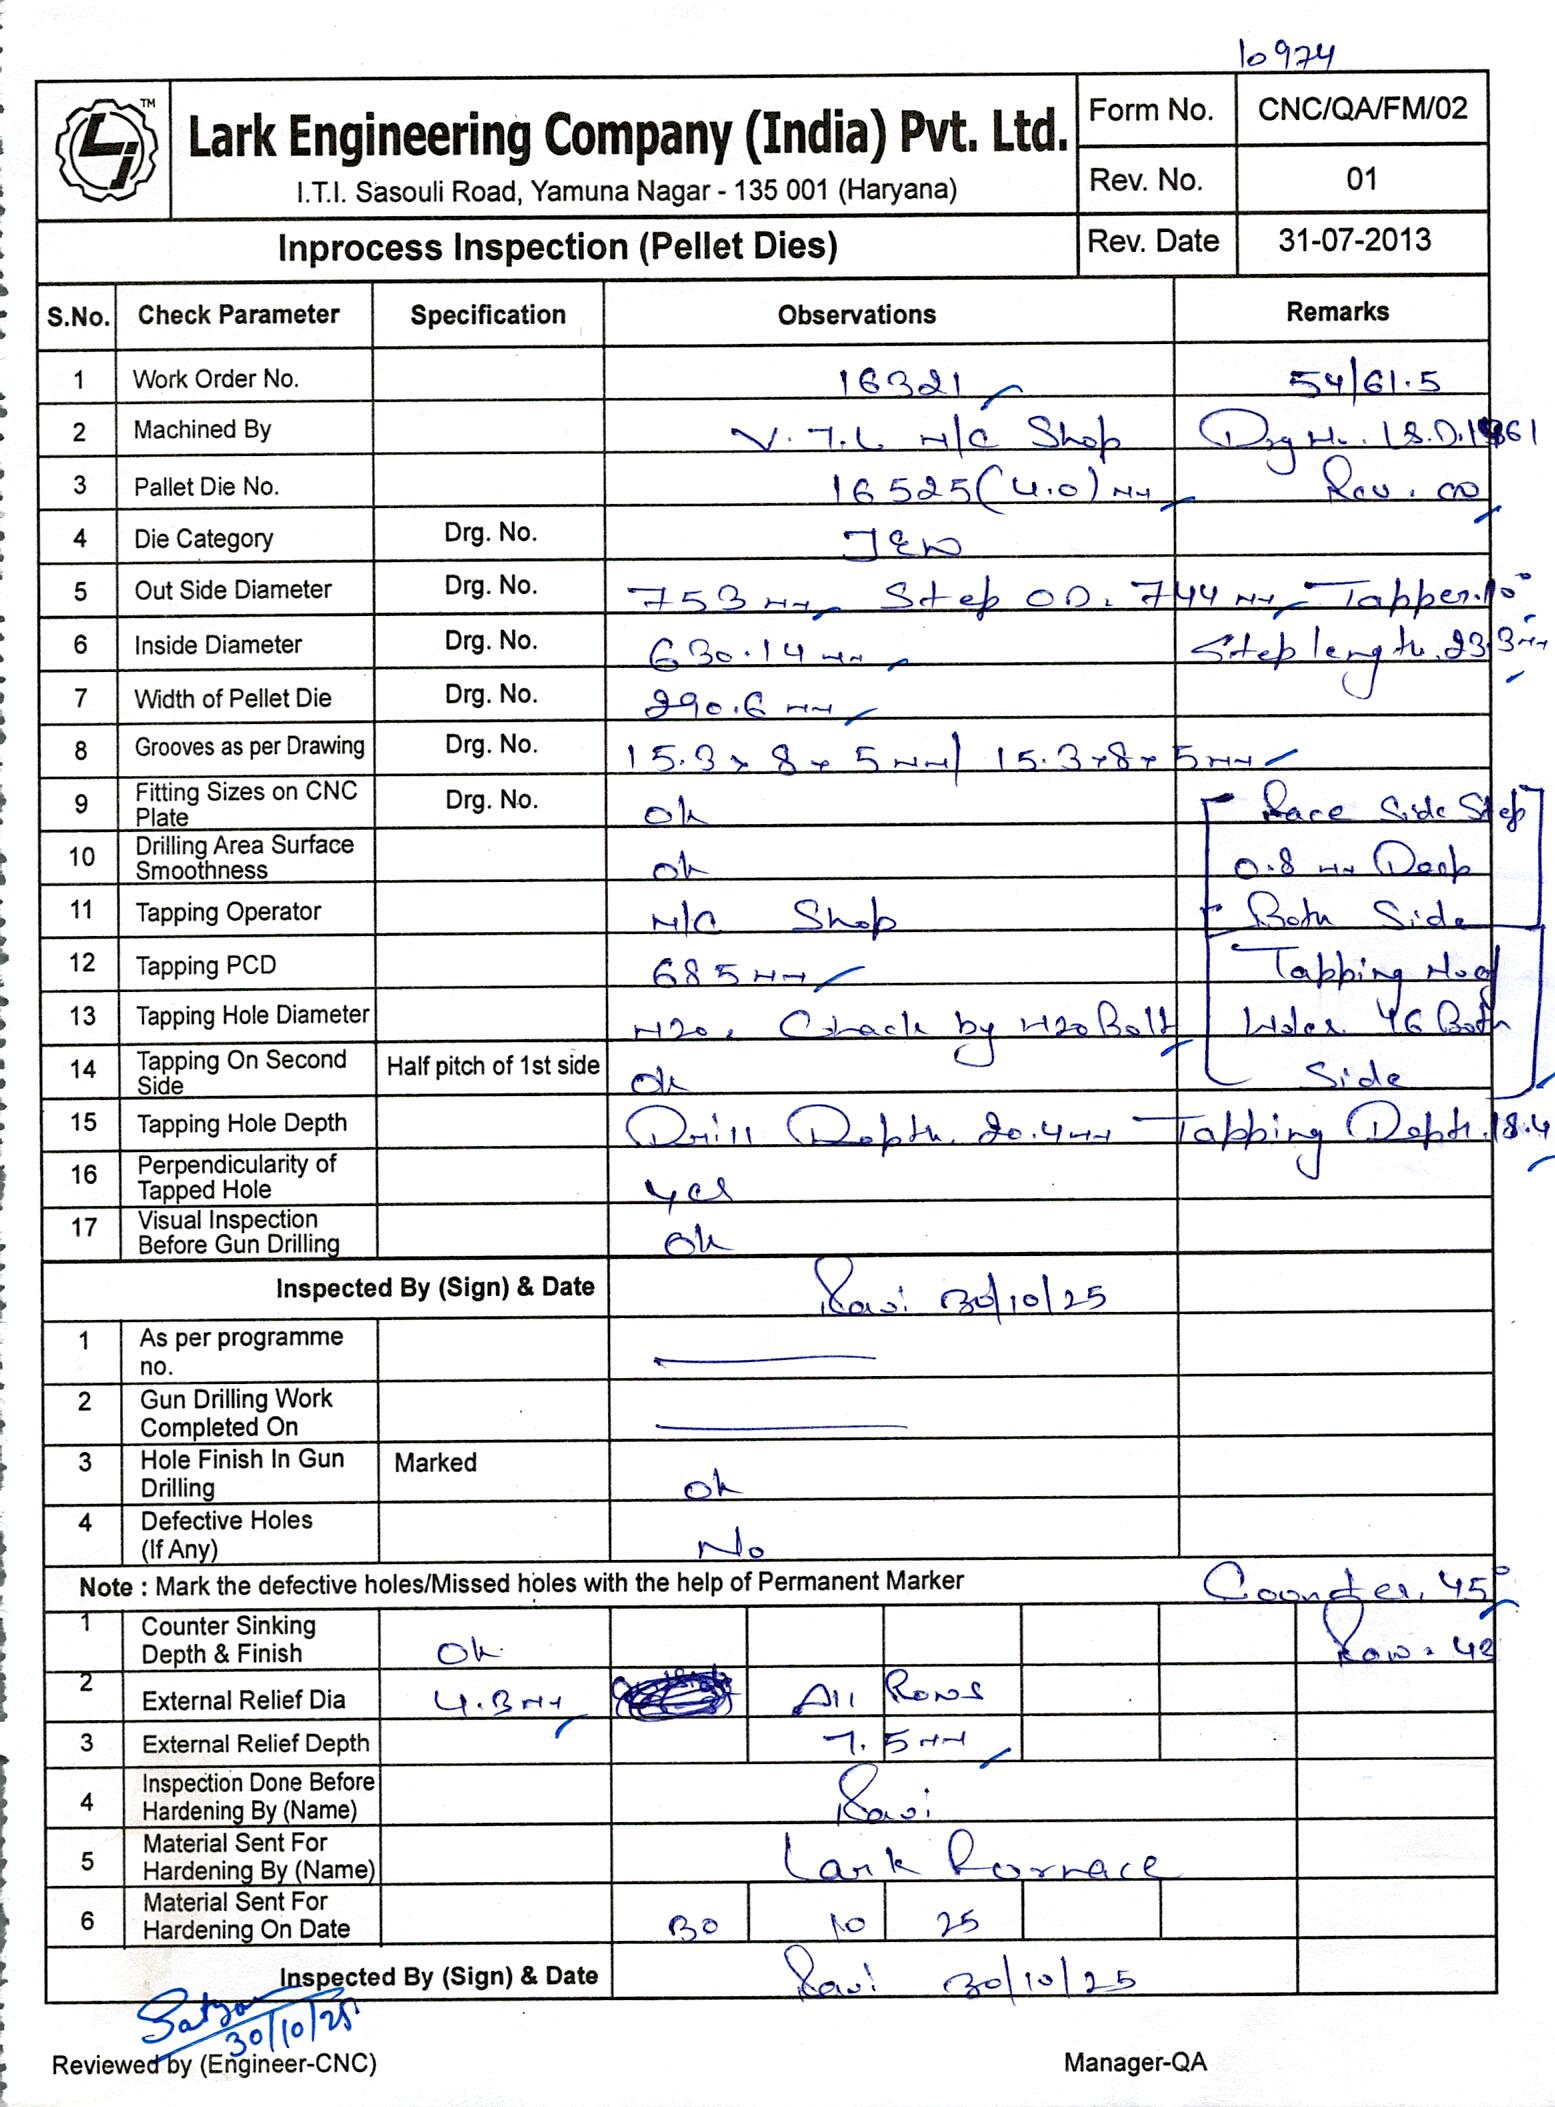 10974
TM
Lark Engineering Company (India) Pvt. Ltd.
I.T.I. Sasouli Road, Yamuna Nagar - 135 001 (Haryana)
Form No. CNC/QA/FM/02
Rev. No. 01
Inprocess Inspection (Pellet Dies)
Rev. Date 31-07-2013
S.No. Check Parameter Specification Observations Remarks
1 Work Order No. 16321 54/61.5
2 Machined By V.T.L M/C Shop Drg No.
3 Pallet Die No. 16525(4.0) MM Rev. 00
4 Die Category Drg. No.
5 Out Side Diameter Drg. No. 753 MM Step OD. 744 MM Tapper. 10°
6 Inside Diameter Drg. No. 630.14 MM Step length. 23.3 MM
7 Width of Pellet Die Drg. No. 290.6 MM
8 Grooves as per Drawing Drg. No. 15.3 x 8 x 5 MM / 15.3 x 8 x 5 MM
9 Fitting Sizes on CNC Plate Drg. No. Ok Race Side Step
10 Drilling Area Surface Smoothness Ok 0.8 MM Deep
11 Tapping Operator M/C Shop Both Side
12 Tapping PCD 685 MM Tapping No of
13 Tapping Hole Diameter M20, Chack by M20 Bolt Holes 46 Both
14 Tapping On Second Side Half pitch of 1st side Ok Side
15 Tapping Hole Depth Drill Depth. 20.4 MM Tapping Depth. 18.4
16 Perpendicularity of Tapped Hole Yes
17 Visual Inspection Before Gun Drilling Ok
Inspected By (Sign) & Date Ravi 30/10/25
1 As per programme no.
2 Gun Drilling Work Completed On
3 Hole Finish In Gun Drilling Marked Ok
4 Defective Holes (If Any) No
Note : Mark the defective holes/Missed holes with the help of Permanent Marker Counter. 45°
1 Counter Sinking Depth & Finish Ok Row = 42
2 External Relief Dia 4.3 MM All Rows
3 External Relief Depth 7.5 MM
4 Inspection Done Before Hardening By (Name) Ravi
5 Material Sent For Hardening By (Name) Lark Fornace
6 Material Sent For Hardening On Date 30 10 25
Inspected By (Sign) & Date Ravi 30/10/25
30/10/25
Reviewed by (Engineer-CNC) Manager-QA